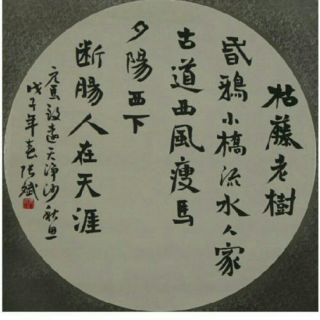 枯藤老樹
昏鴉小橋流水人家
古道西風瘦馬
夕陽西下
断腸人在天涯
元馬致遠天净沙秋思
戊子年春张斌